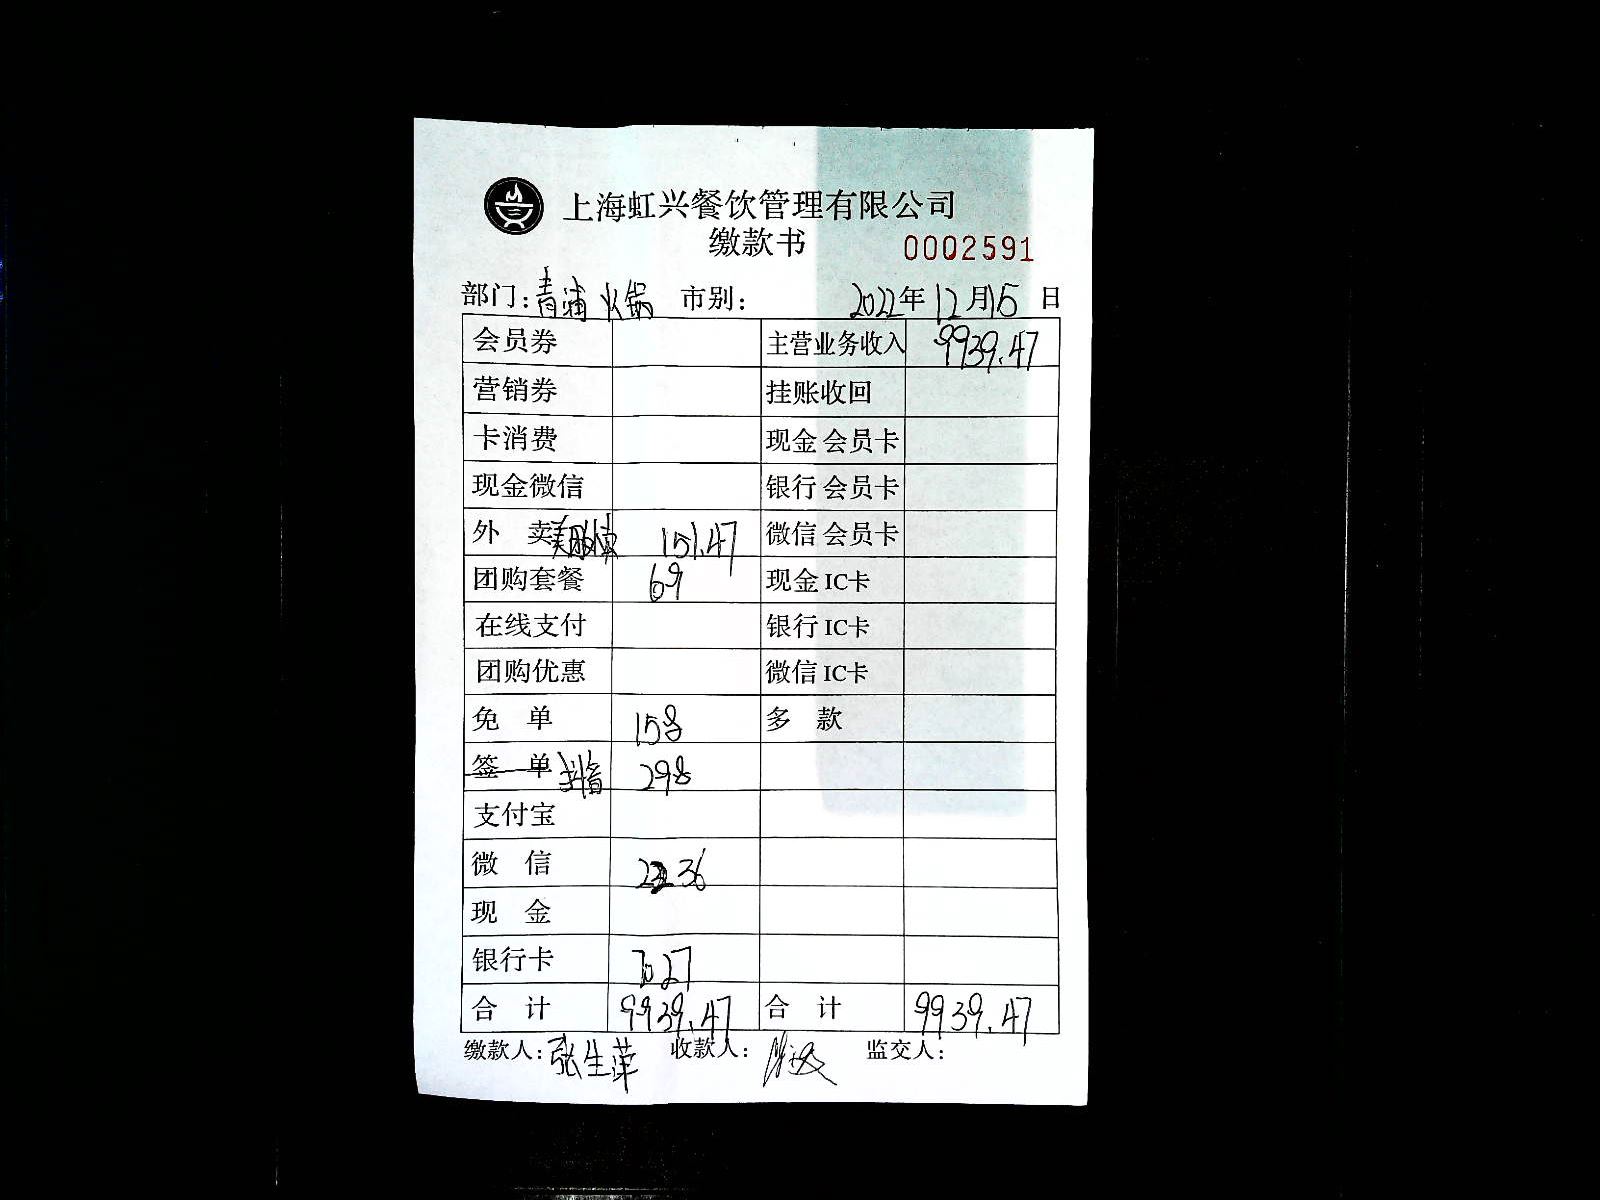 上海虹兴餐饮管理有限公司
缴款书 0002591
部门：青浦火锅 市别： 2022年12月15日
会员券 主营业务收入 9939.47
营销券 挂账收回
卡消费 现金会员卡
现金微信 银行会员卡
外 卖 151.47 微信会员卡
团购套餐 69 现金IC卡
在线支付 银行IC卡
团购优惠 微信IC卡
免 单 158 多 款
签 单 抖音 298
支付宝
微 信 2236
现 金
银行卡 7027
合 计 9939.47 合 计 9939.47
缴款人：张生萍 收款人： 监交人：